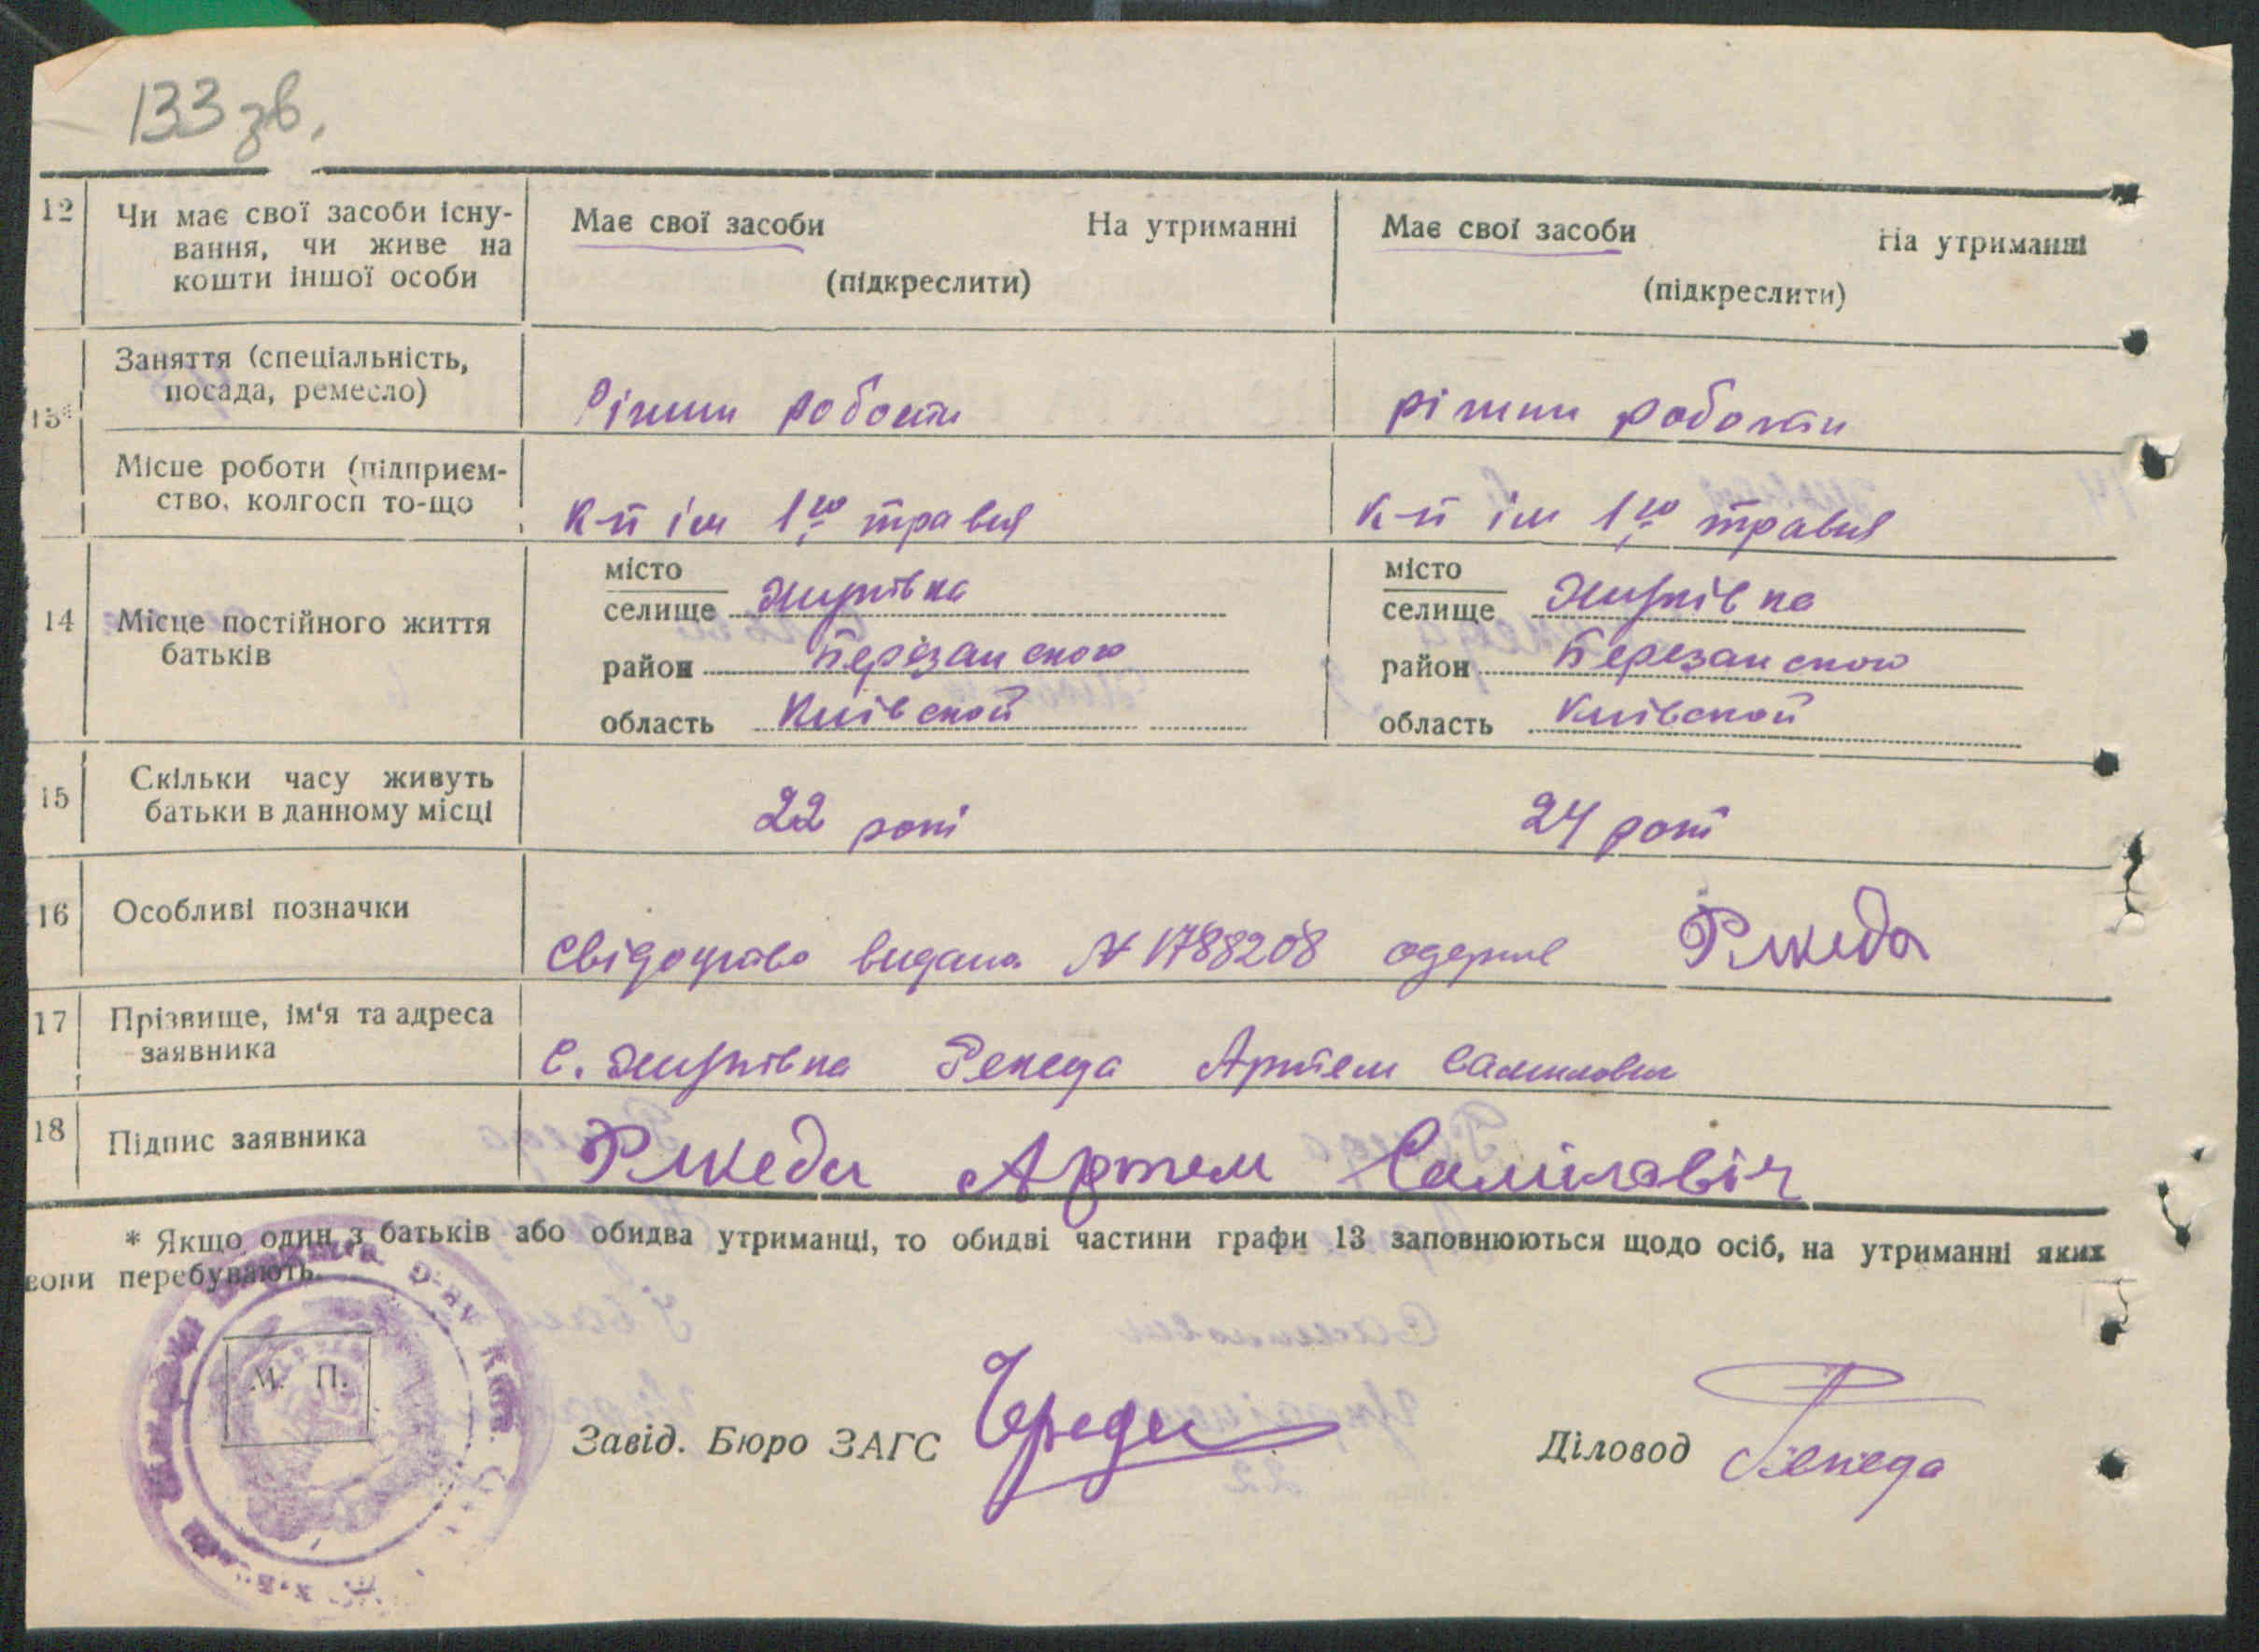 133 зв.
12 Чи має свої засоби існу- Має свої засоби На утриманні Має свої засоби На утриманні
вання, чи живе на
кошти іншої особи (підкреслити) (підкреслити)
Заняття (спеціальність,
посада, ремесло) Ріжни роботи ріжни роботи
13*
Місце роботи (підприєм-
ство, колгосп то-що К-п ім 1го травня К-п ім 1го травня
14 Місце постійного життя
батьків
місто місто
селище селище
район Березанского район Березанского
область Київской область Київской
15 Скільки часу живуть
батьки в данному місці 22 рокі 24 рокі
16 Особливі позначки Свідоцтво видана № 1788208 одержив
17 Прізвище, ім'я та адреса
заявника С. Репеда Артем Самилович
18 Підпис заявника Артем Самілавіч
* Якщо один з батьків або обидва утриманці, то обидві частини графи 13 заповнюються щодо осіб, на утриманні яких
вони перебувають.
М. П.
Завід. Бюро ЗАГС Діловод Репеда